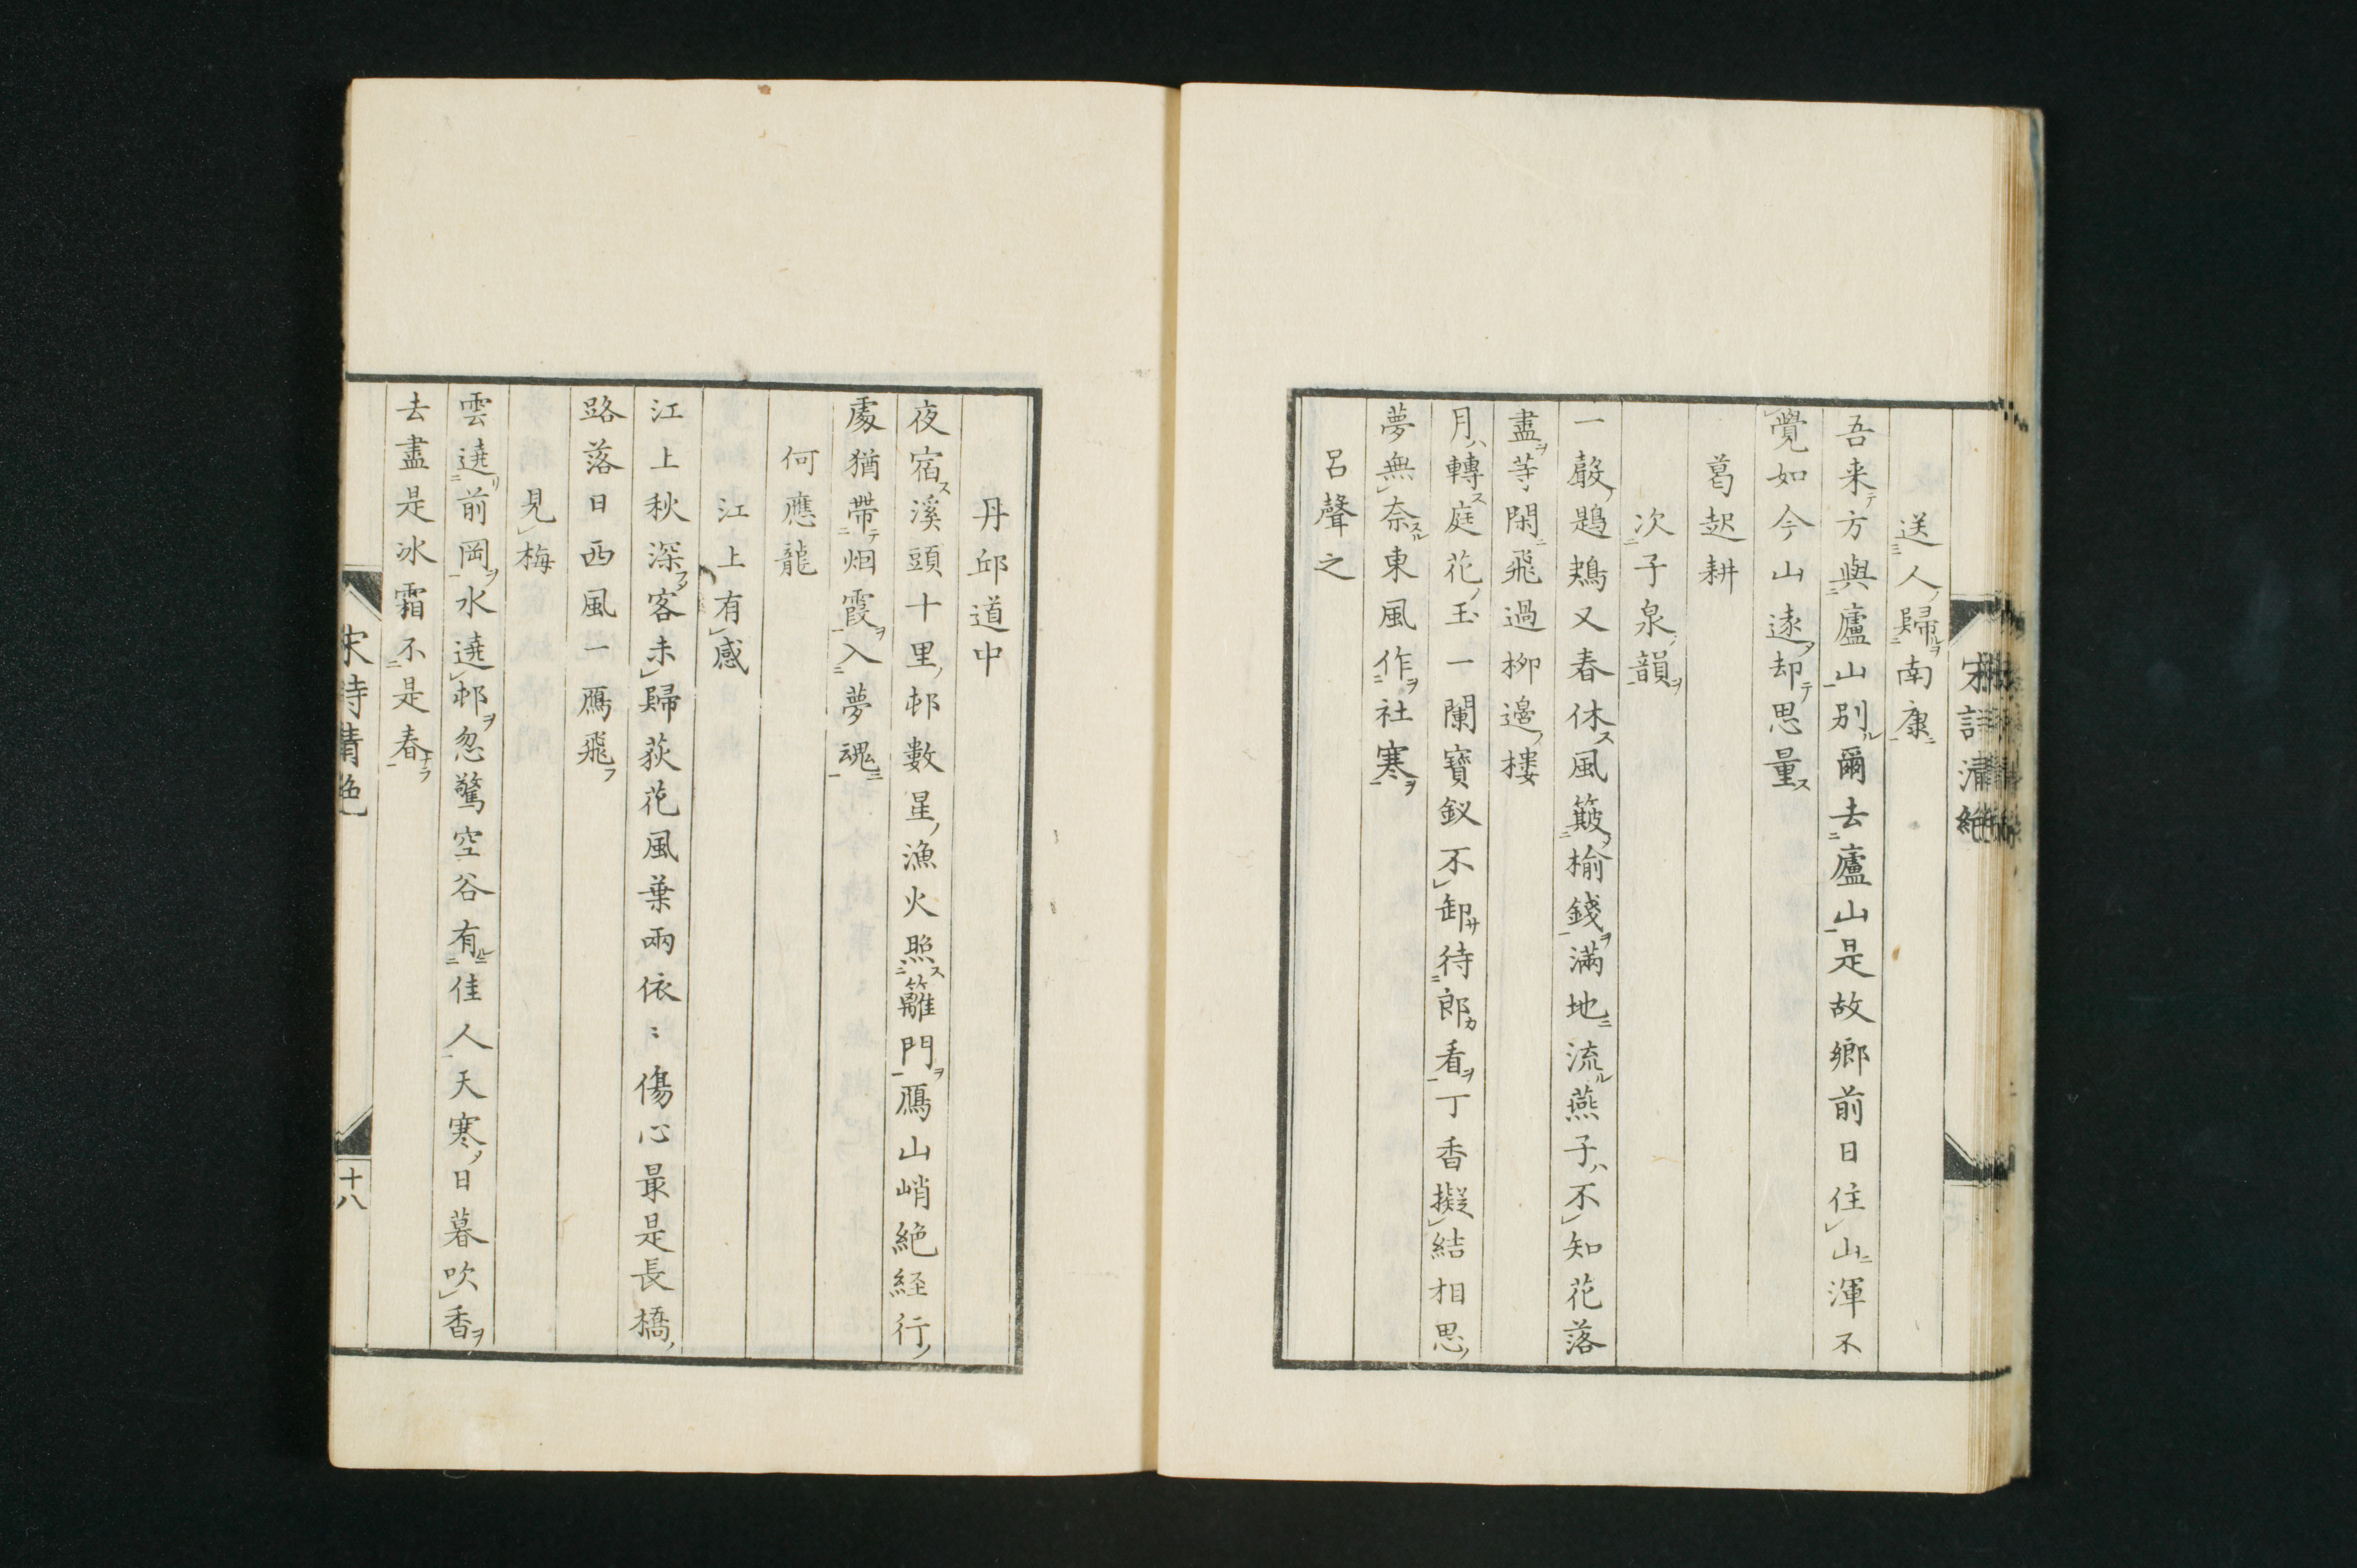 宋詩清絶
送人歸南康
吾来方與廬山別爾去廬山是故郷前日住山渾不
覺如今山遠却思量
葛起耕
次子泉韻
一聲鶗鴂又春休風簸榆錢滿地流燕子不知花落
盡等閑飛過柳邊樓
月轉庭花玉一闌寶釵不卸待郎看丁香擬結相思
夢無奈東風作社寒
呂聲之
丹邱道中
夜宿溪頭十里邨數星漁火照籬門鴈山峭絶経行
處猶帶烟霞入夢魂
何應龍
江上有感
江上秋深客未歸荻花風葉兩依〻傷心最是長橋
路落日西風一鴈飛
見梅
雲遶前岡水遶邨忽驚空谷有佳人天寒日暮吹香
去盡是冰霜不是春
宋詩清絶
十八